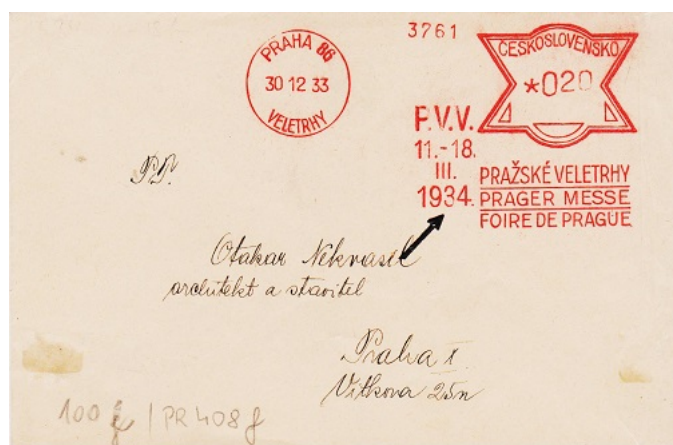 3761
PRAHA 86
30 12 33
VELETRHY
ČESKOSLOVENSKO
*020
P.V.V.
11.-18.
III.
1934.
PRAŽSKÉ VELETRHY
PRAGER MESSE
FOIRE DE PRAGUE
PT.
Otakar Nekvasil
architekt a stavitel
Praha X
Vítkova 25n
100 / PR 408 g